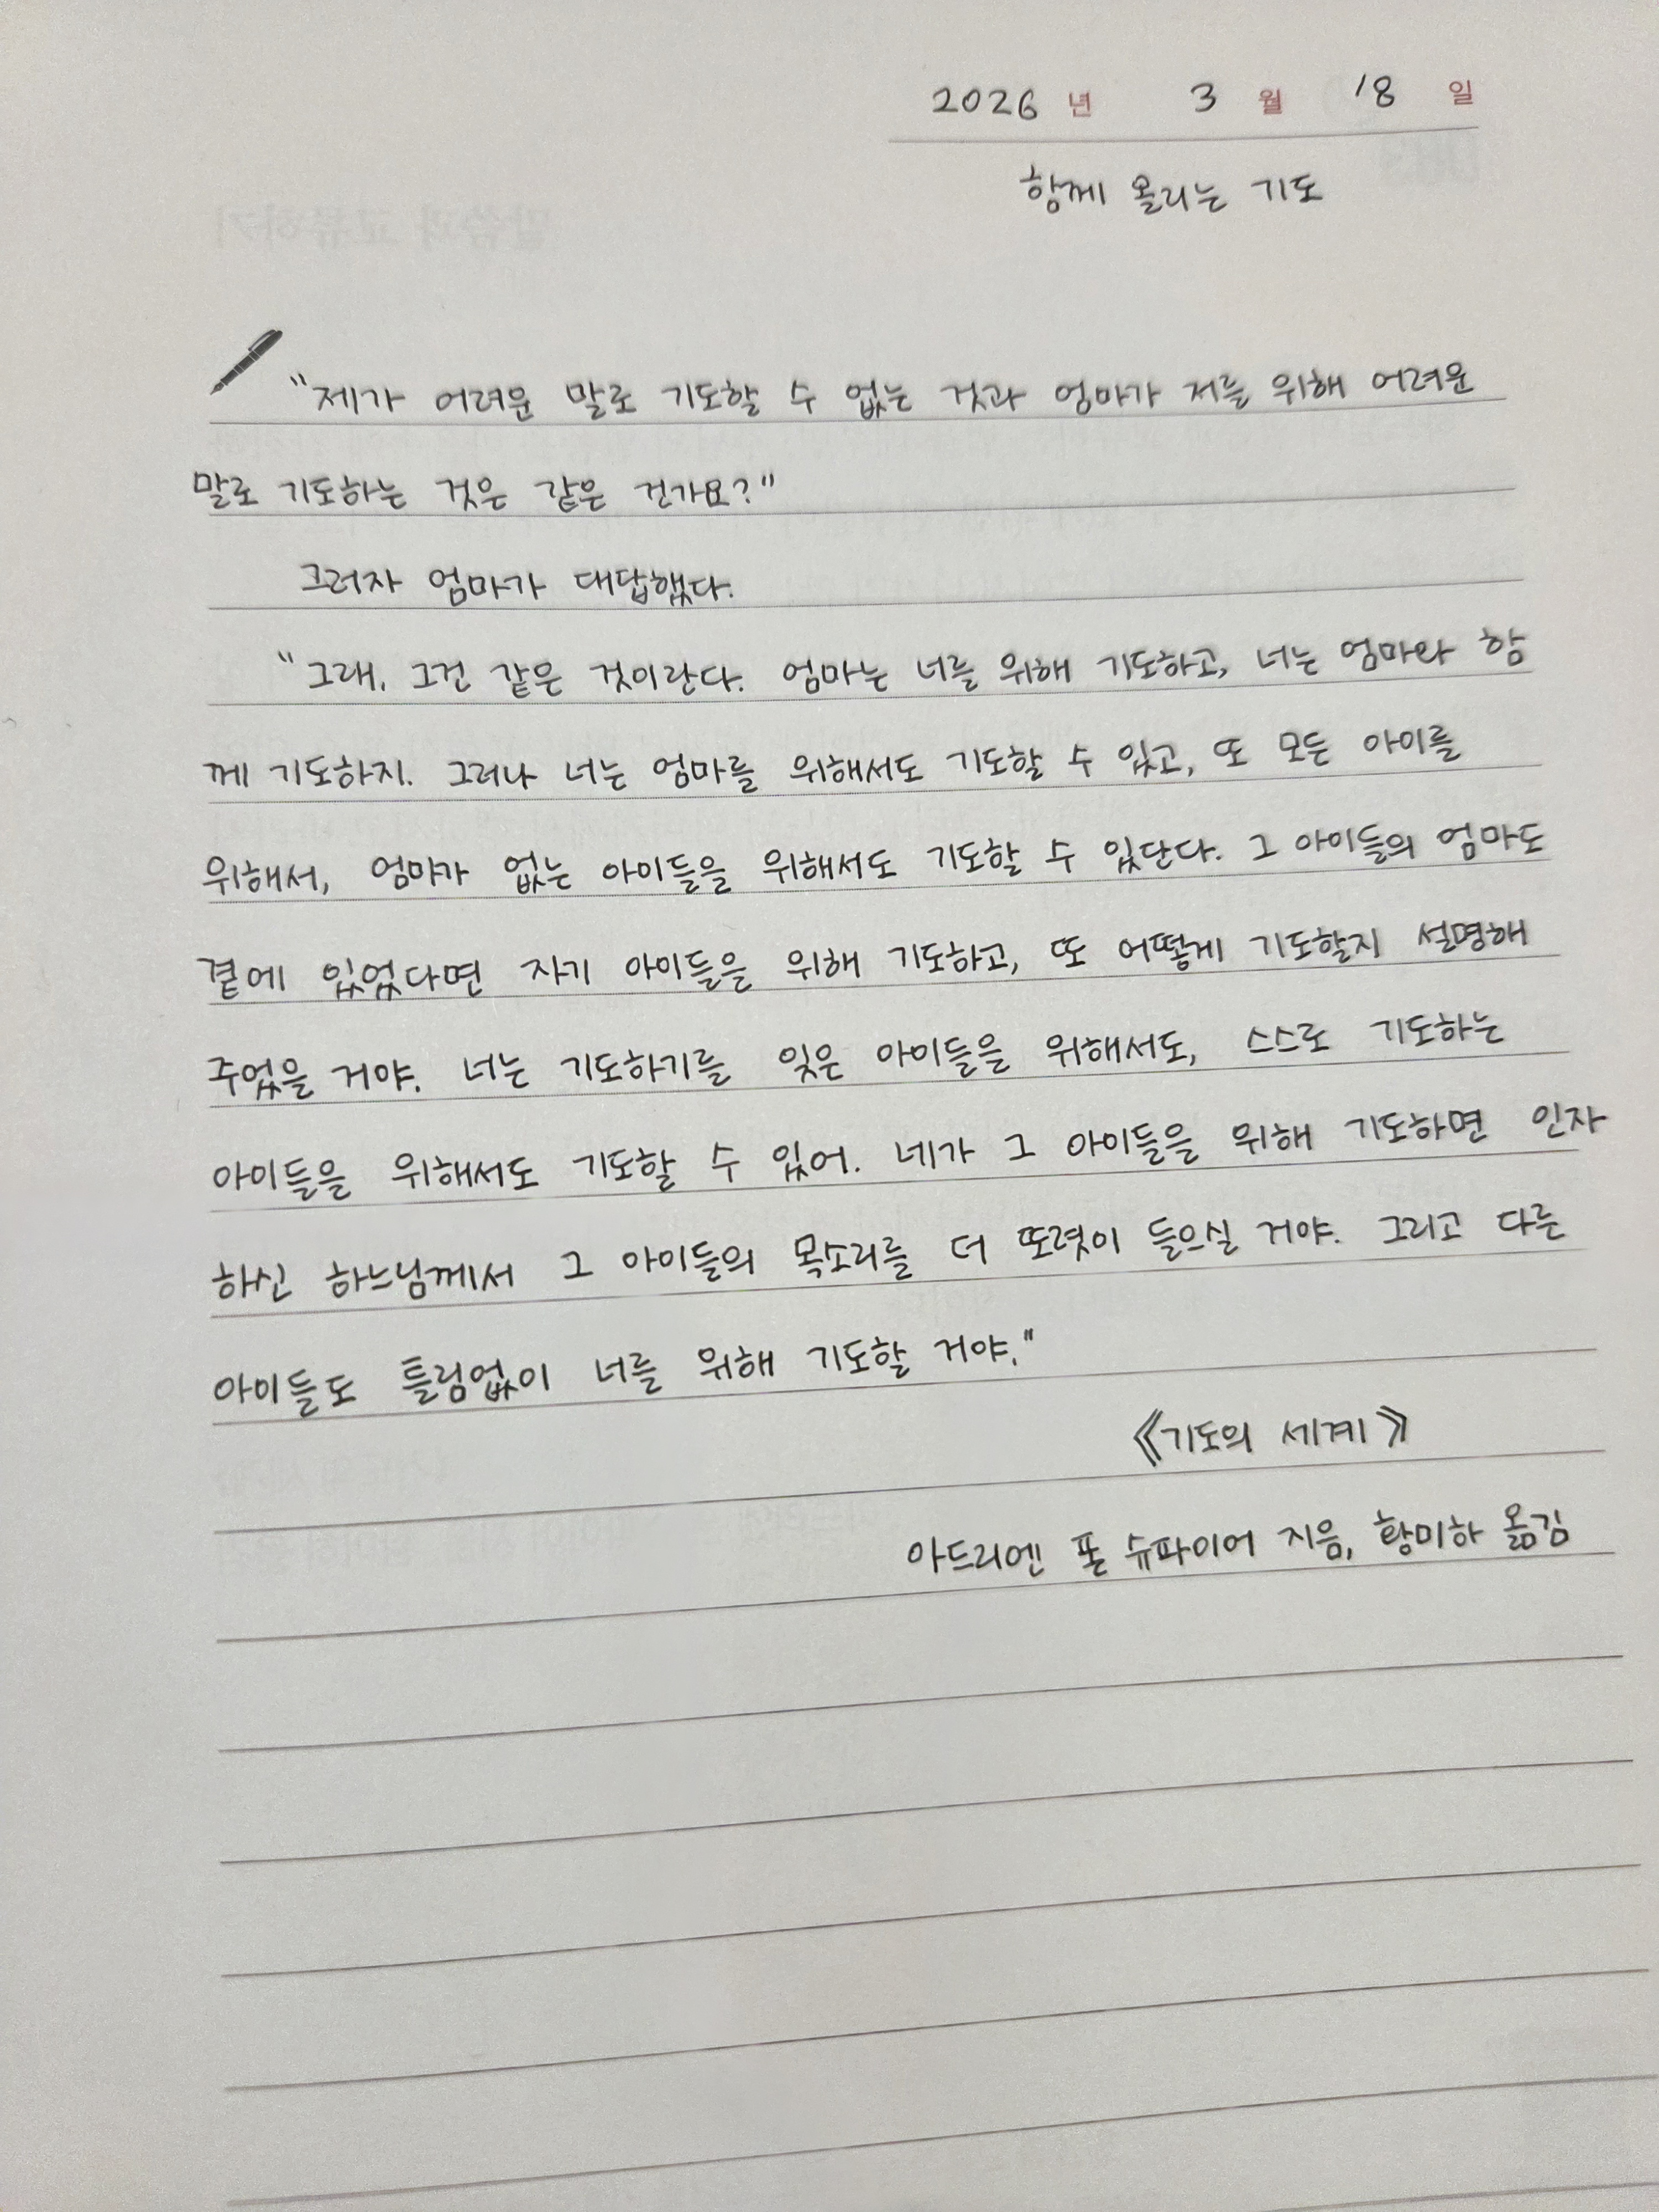 2026 년 3 월 18 일
함께 올리는 기도
"제가 어려운 말로 기도할 수 없는 것과 엄마가 저를 위해 어려운
말로 기도하는 것은 같은 건가요?"
그러자 엄마가 대답했다.
"그래, 그건 같은 것이란다. 엄마는 너를 위해 기도하고, 너는 엄마와 함
께 기도하지. 그러나 너는 엄마를 위해서도 기도할 수 있고, 또 모든 아이를
위해서, 엄마가 없는 아이들을 위해서도 기도할 수 있단다. 그 아이들의 엄마도
곁에 있었다면 자기 아이들을 위해 기도하고, 또 어떻게 기도할지 설명해
주었을 거야. 너는 기도하기를 잊은 아이들을 위해서도, 스스로 기도하는
아이들을 위해서도 기도할 수 있어. 네가 그 아이들을 위해 기도하면 인자
하신 하느님께서 그 아이들의 목소리를 더 또렷이 들으실 거야. 그리고 다른
아이들도 틀림없이 너를 위해 기도할 거야."
《기도의 세계》
아드리엔 폰 슈파이어 지음, 황미하 옮김